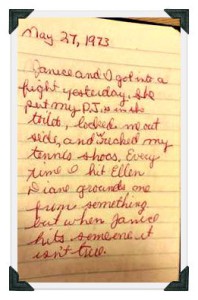 May 27, 1973
Janice and I got into a
fight yesterday. She
put my P.J.s in its
toilet, locked me out
side, and my
tennis shoes. Every
time I hit Ellen
Diane grounds me
from something
but when Janice
hits someone it
isn't true.